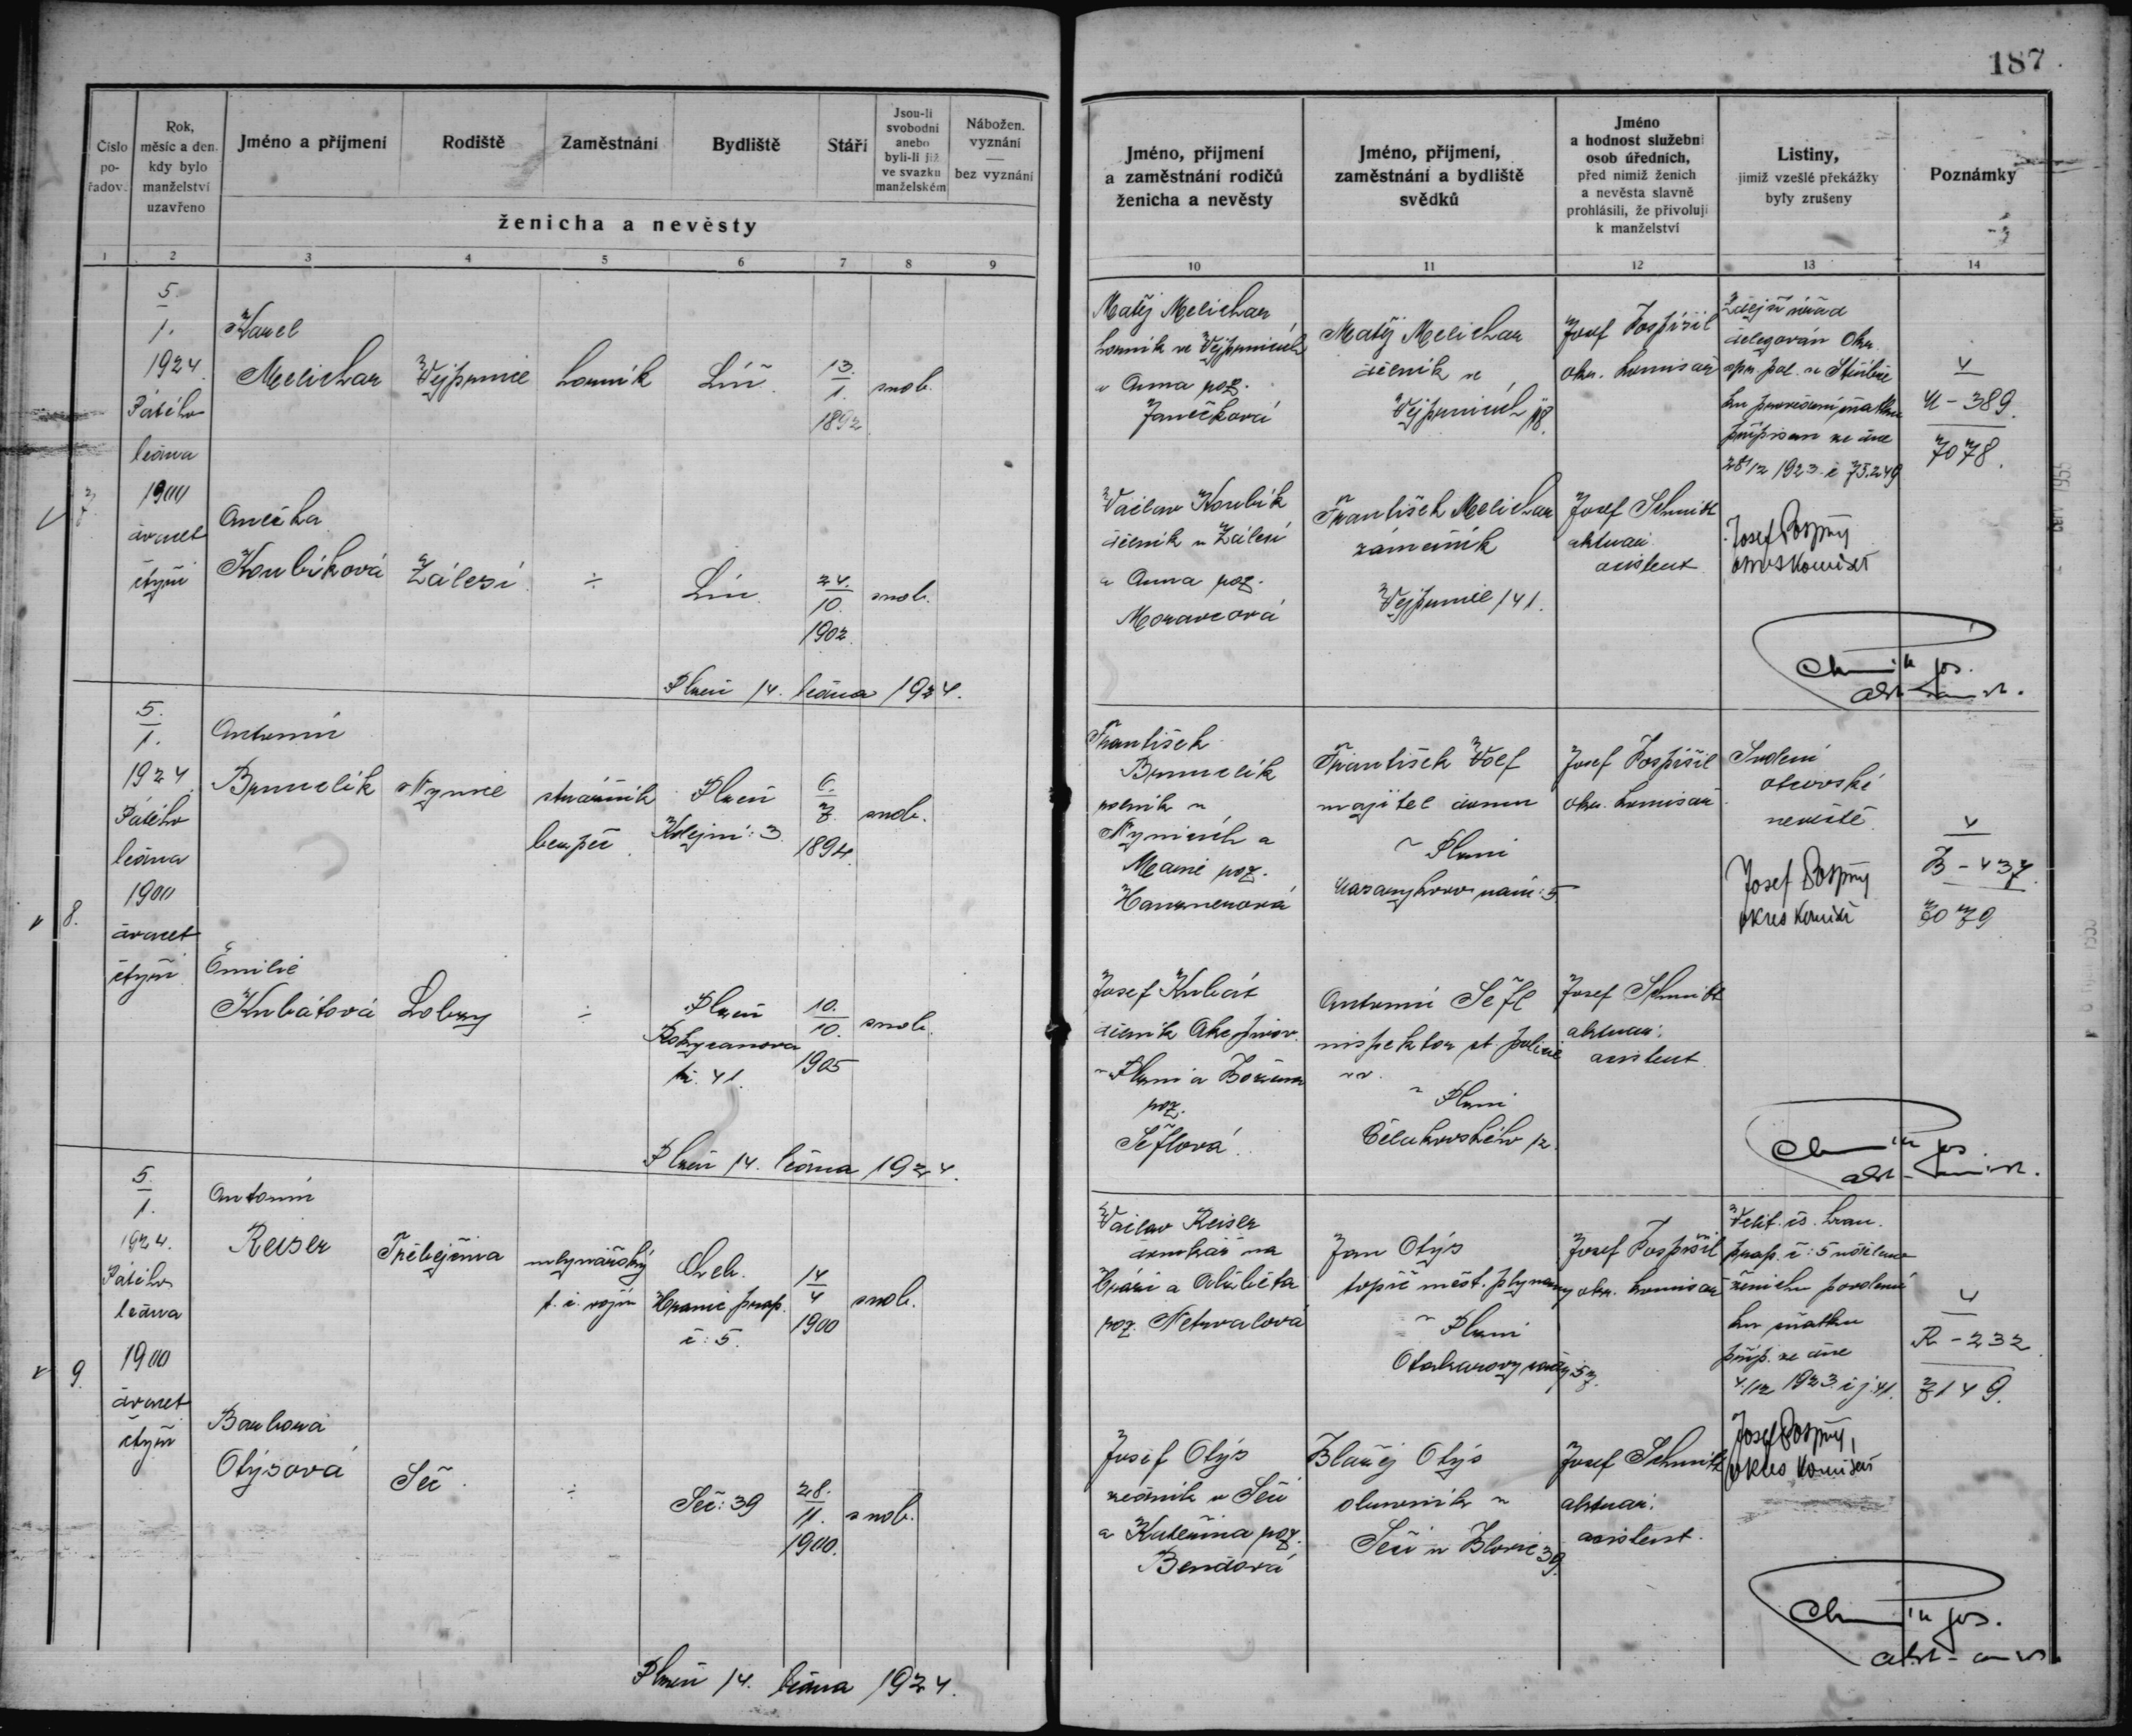 187
Číslo po-řadov.
Rok, měsíc a den, kdy bylo manželství uzavřeno
Jméno a příjmení
Rodiště
Zaměstnání
Bydliště
Stáří
Jsou-li svobodni anebo byli-li již ve svazku manželském
Nábožen. vyznání — bez vyznání
ženicha a nevěsty
Jméno, příjmení a zaměstnání rodičů ženicha a nevěsty
Jméno, příjmení, zaměstnání a bydliště svědků
Jméno a hodnost služební osob úředních, před nimiž ženich a nevěsta slavně prohlásili, že přivolují k manželství
Listiny, jimiž vzešlé překážky byly zrušeny
Poznámky
1 2 3 4 5 6 7 8 9 10 11 12 13 14
7.
5.
1.
1924
Pátého
ledna
1900
dvacet
čtyři
Karel
Melichar
Vejprnice
horník
Líň
13.
1.
1892
svob.
Anežka
Koubíková
Zálesí
÷
Líň
24.
10.
1902.
svob.
Plzeň 14. ledna 1924.
Matěj Melichar
horník ve Vejprnicích
a Anna roz.
Janečková
Václav Koubík
dělník v Zálesí
a Anna roz.
Moravcová
Matěj Melichar
dělník ve
Vejprnicích
František Melichar
zámečník
Vejprnice 141.
Josef Pospíšil
okr. komisař
Josef Schmidt
aktuár.
asistent
Zdejší úřad
delegován Okr.
spr. pol. ve Stříbře
ku provedení sňatku
přípisem ze dne
28/12 1923 č 75.249
Josef Pospíšil
okres komisař
V
M - 389.
7078.
8.
5.
1.
1924
Pátého
ledna
1900
dvacet
čtyři
Antonín
Brummelík
Nýrsko
strážník
bezpeč
Plzeň
Kolejní: 3
6.
7.
1894
svob.
Emilie
Kubátová
Lobzy
÷
Plzeň
Rokycanova
tř. 41.
10.
10.
1905
svob.
Plzeň 14. ledna 1924.
František
rolník v
a
Marie roz.
Josef Kubát
dělník Akc. pivov.
v Plzni a Božena
roz.
Šeflová
František Wolf
majitel domu
v Plzni
Masarykovo nám: 5
Antonín Šefl
inspektor st. policie
v. v.
v Plzni
Čelakovského 12.
Josef Pospíšil
okr. komisař
Josef Schmidt
aktuár.
asistent
Svolení
otcovské
nevěstě
Josef Pospíšil
okres komisař
V
B - 437.
7079
9.
5.
1.
1924.
Pátého
ledna
1900
dvacet
čtyři
Antonín
Reiser
Třebejčina
mlynářský
t. č. vojín
Cheb.
Hranič. prap.
č: 5.
14
4
1900
svob.
Barbora
Olýsová
Seč.
÷
Seč: 39
28.
11.
1900.
svob.
Plzeň 14. ledna 1924.
Václav Reiser
domkář na
a Alžběta
roz. Netrvalová
Josef Olýs
řezník v Seči
a Kateřina roz.
Bendová
Jan Olýs
topič měst. plynárny
v Plzni
Otakarovy sady 57.
Blažej Olýs
v
Seči u Blovic 39.
Josef Pospíšil
okr. komisař
Josef Schmidt
aktuár.
asistent.
Velit. čs. hran.
prap. č: 5 uděleno
ženichu povolení
ku sňatku
příp. ze dne
4./12 1923 č j. 41.
Josef Pospíšil,
okres komisař
V
R - 232
7149.